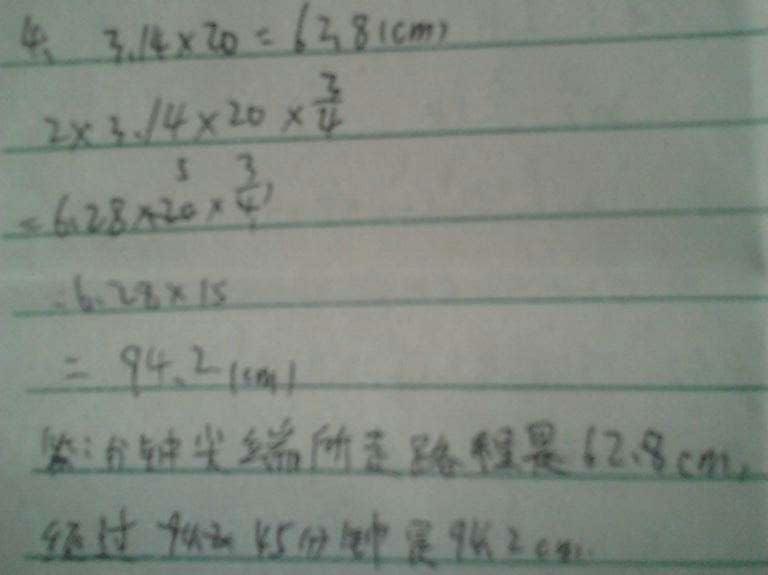 4、 3.14×20=62.8(cm)
2×3.14×20×3/4
=6.28×20×3/4
=6.28×15
=94.2(cm)
答:分钟尖端所走路程是62.8cm,
经过 45分钟是94.2cm.